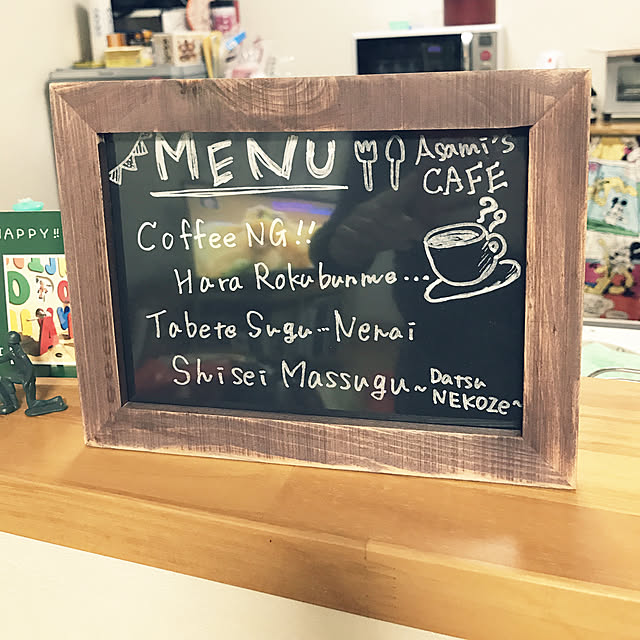 MENU
Asami's
CAFE
Coffee NG!!
Hara Rokubunme...
Tabete Sugu...Nenai
Shisei Massugu~
Datsu
NEKOZE~
HAPPY!!